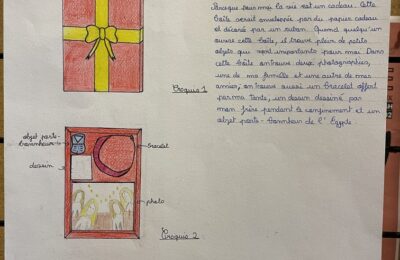 Puisque pour moi la vie est un cadeau. Cette
boîte serait enveloppée par du papier cadeau
et décoré par un ruban. Quand quelqu'un
ouvre cette boîte, il trouve plein de petits
objets qui sont importants pour moi. Dans
cette boîte on trouve deux photographies,
une de ma famille et une autre de mes
amies, on trouve aussi un bracelet offert
par ma tante, un dessin dessiné par
mon frère pendant le confinement et un
objet porte-bonheur de l'Egypte.
Croquis 1
objet porte-
bonheur
bracelet
dessin
photo
Croquis 2